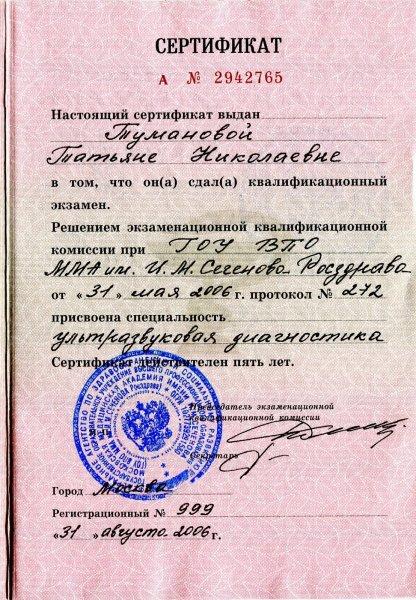 СЕРТИФИКАТ
А № 2942765
Настоящий сертификат выдан
Тумановой
Татьяне Николаевне
в том, что он(а) сдал(а) квалификационный
экзамен.
Решением экзаменационной квалификационной
комиссии при ГОУ ВПО
ММА им. И.М. Сеченова Росздрава
от «31» мая 2006 г. протокол № 272
присвоена специальность
ультразвуковая диагностика
Сертификат действителен пять лет.
Председатель экзаменационной
квалификационной комиссии
Секретарь
Город Москва
Регистрационный № 999
«31» августа 2006 г.